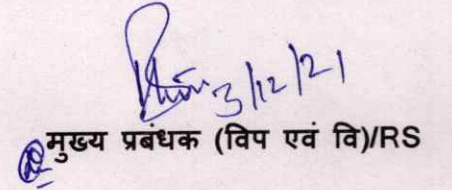 3/12/21
मुख्य प्रबंधक (विप एवं वि)/RS